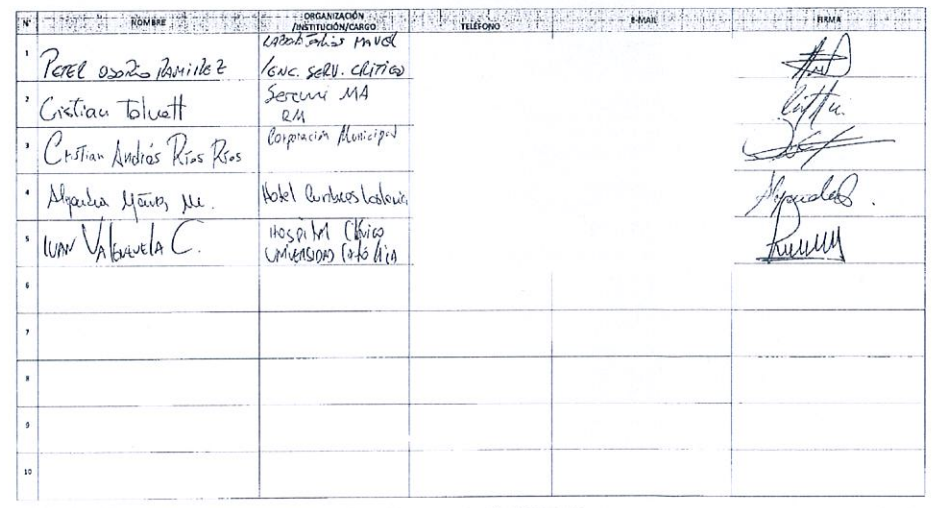 N° NOMBRE ORGANIZACIÓN /INSTITUCIÓN/CARGO TELÉFONO E-MAIL FIRMA
1 PETER OSORIO RAMIREZ LABORATORIOS MAVER /ENC. SERV. CRITICO
2 Cristian Tolvett Seremi MA RM
3 Cristian Andrés Ríos Ríos Corporación Municipal
4 Hotel
5 IVAN VALENZUELA C. HOSPITAL Clínico UNIVERSIDAD CATÓLICA
6
7
8
9
10